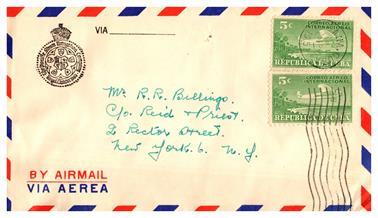 VIA
5¢
CORREO AEREO
INTERNACIONAL
REPUBLICA DE CUBA
5¢
CORREO AEREO
INTERNACIONAL
REPUBLICA DE CUBA
Mr. R. R. Billings
c/o Reid & Priest.
2 Rector Street.
New York. 6. N. Y.
BY AIRMAIL
VIA AEREA